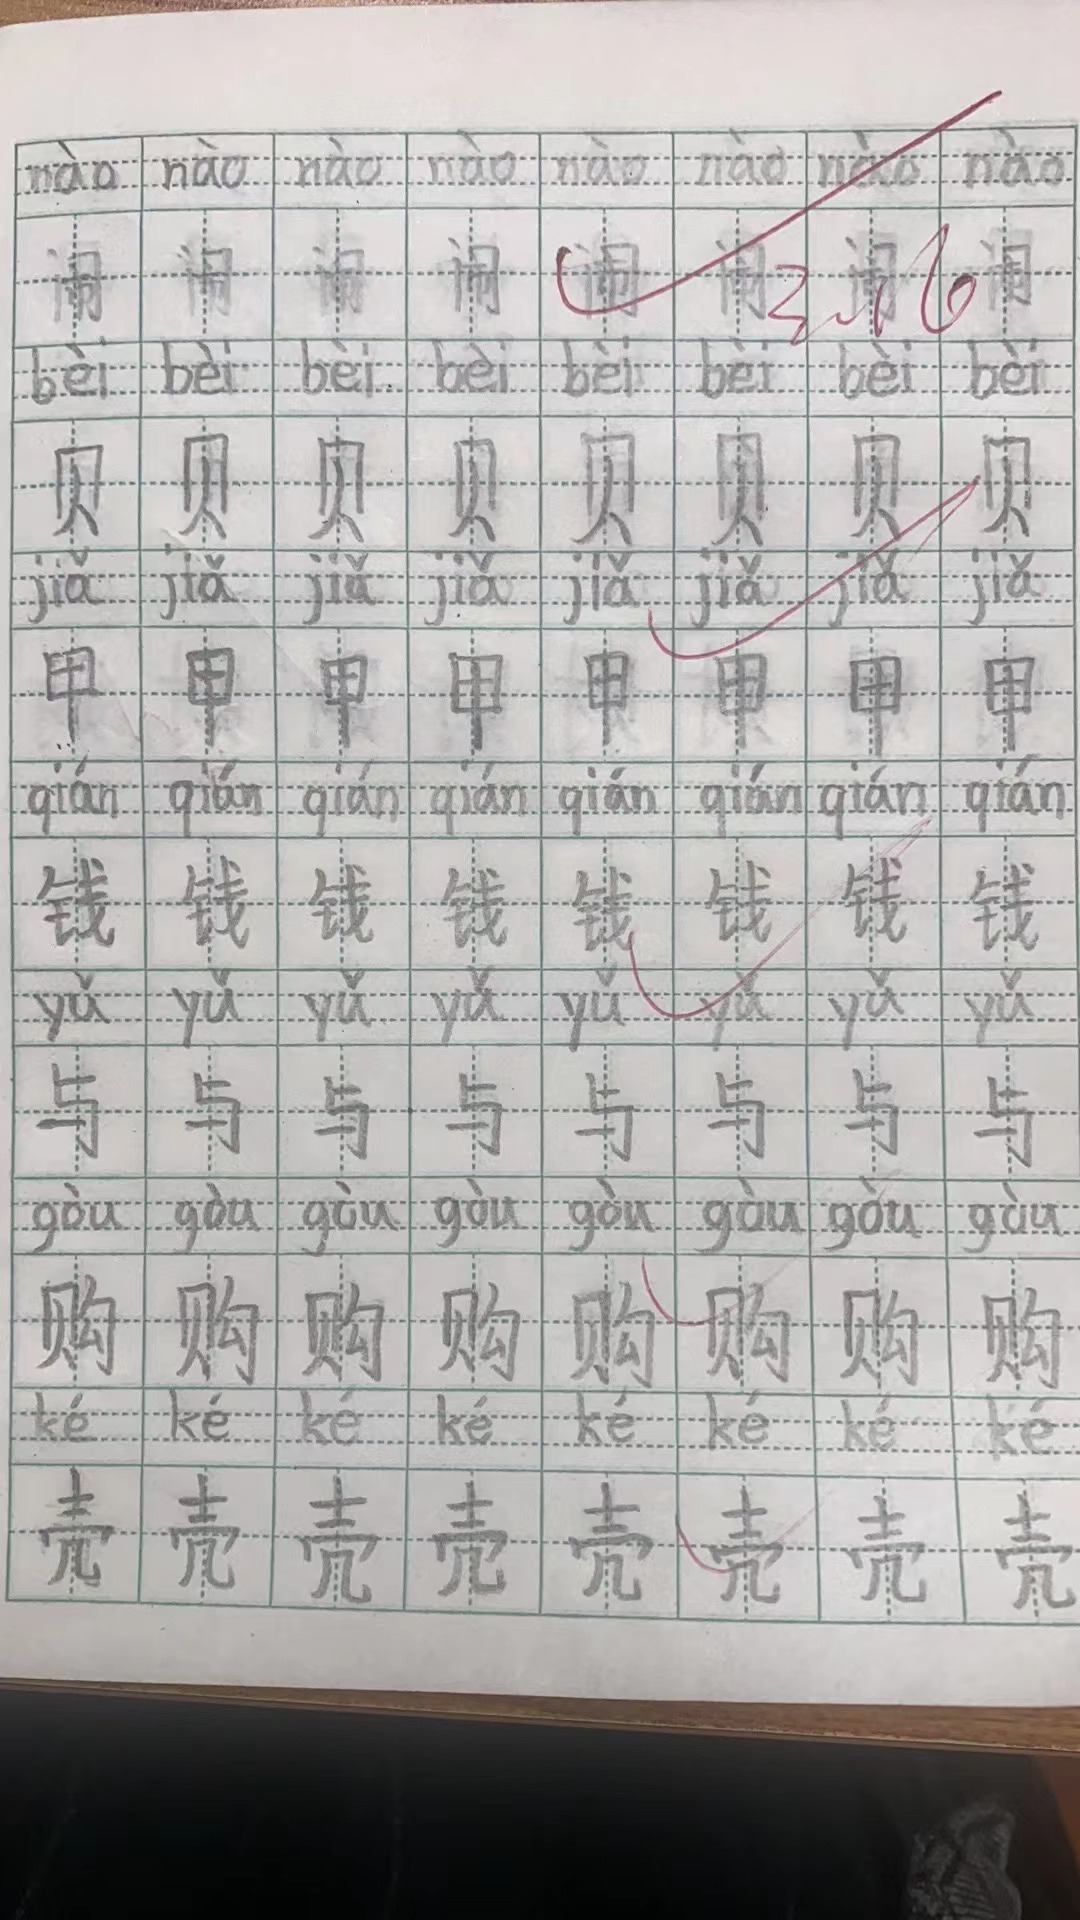 nào nào nào nào nào nào nào nào
闹 闹 闹 闹 闹 闹 闹 闹
3.16
bèi bèi bèi bèi bèi bèi bèi bèi
贝 贝 贝 贝 贝 贝 贝 贝
jiǎ jiǎ jiǎ jiǎ jiǎ jiǎ jiǎ jiǎ
甲 甲 甲 甲 甲 甲 甲 甲
qián qián qián qián qián qián qián qián
钱 钱 钱 钱 钱 钱 钱 钱
yǔ yǔ yǔ yǔ yǔ yǔ yǔ yǔ
与 与 与 与 与 与 与 与
gòu gòu gòu gòu gòu gòu gòu gòu
购 购 购 购 购 购 购 购
ké ké ké ké ké ké ké ké
壳 壳 壳 壳 壳 壳 壳 壳